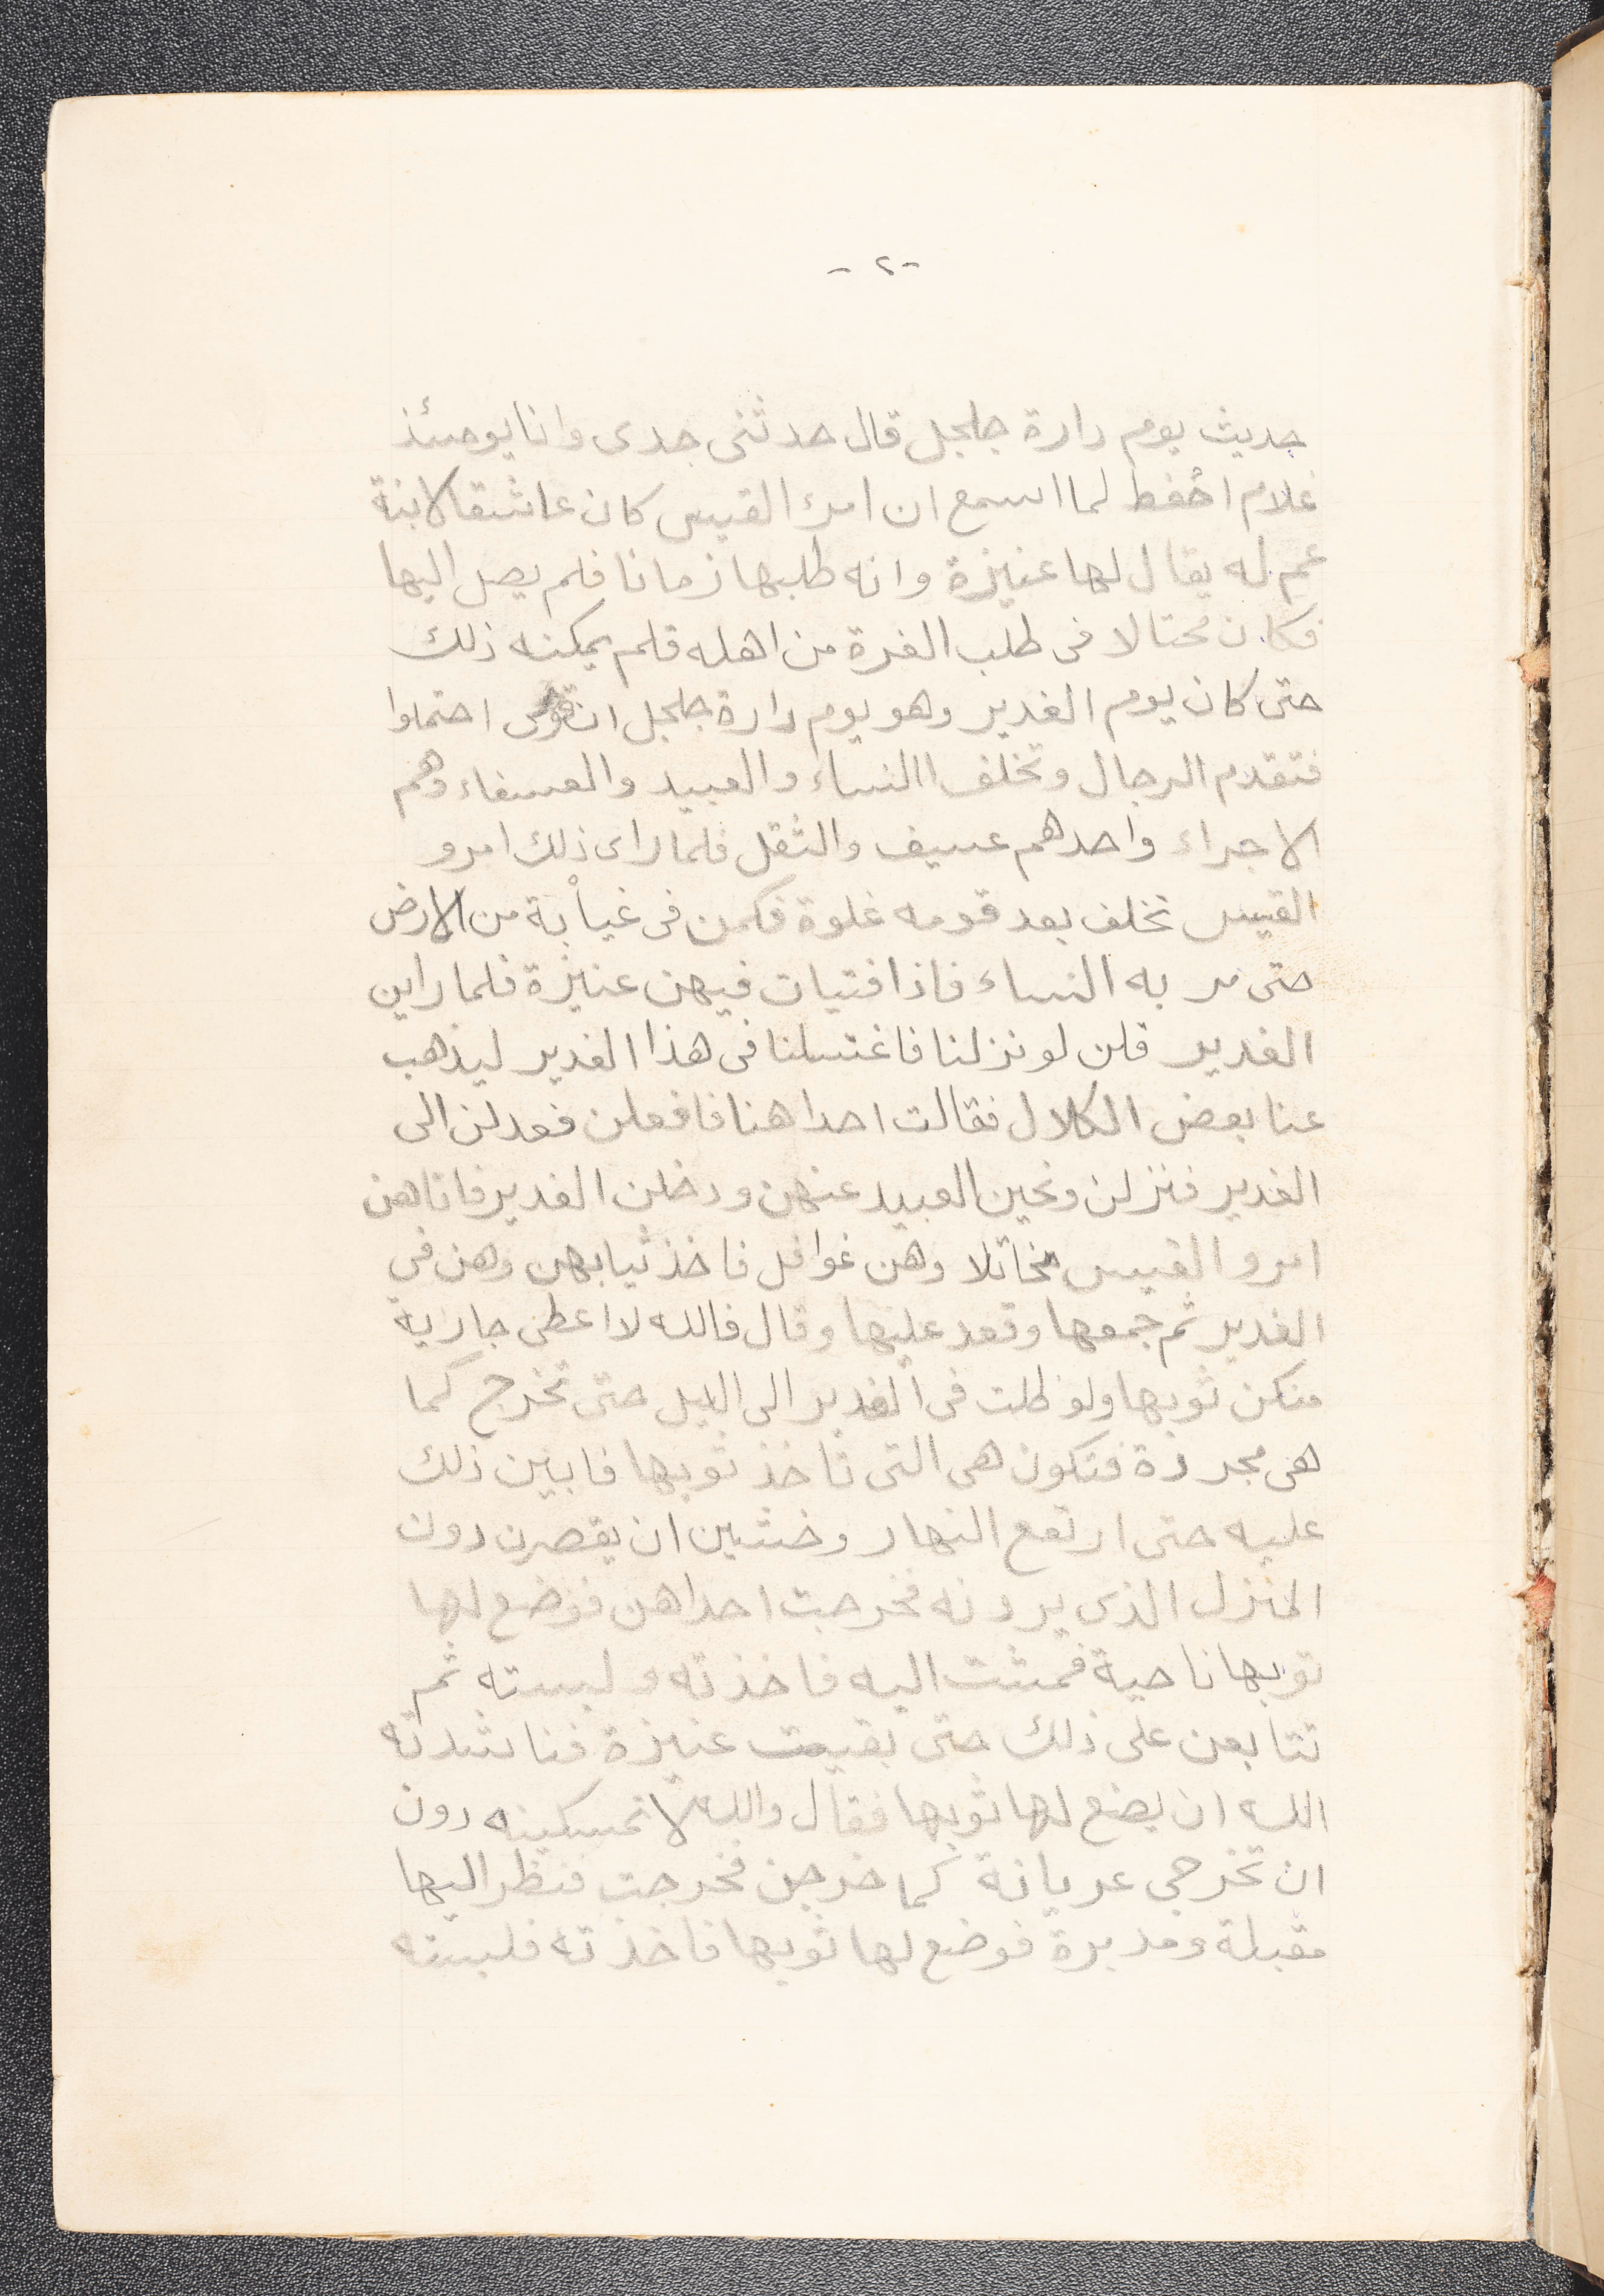 -٢-
حديث يوم دارة جلجل قال حدثنى جدى وانا يومئذ
غلام احفظ لما اسمع ان امرء القيس كان عاشقا لابنة
عم له يقال لها عنيزة وانه طلبها زمانا فلم يصل اليها
فكان محتالا فى طلب الغرة من اهله فلم يمكنه ذلك
حتى كان يوم الغدير وهو يوم دارة جلجل ان احتملوا
فتقدم الرجال وتخلف االنساء والعبيد والعسفاء وهم
الاجراء واحدهم عسيف والثقل فلما راى ذلك امرو
القيس تخلف بعد قومه غلوة فكمن فى غيابة من الارض
حتى مر به النساء فاذا فتيات فيهن عنيزة فلما راين
الغدير قلن لو نزلنا فاغتسلنا فى هذا الغدير ليذهب
عنا بعض الكلال فقالت احداهنا فافعلن فعدلن الى
الغدير فنزلن ونحين العبيد عنهن ودخلن الغدير فاتاهن
امرو القيس مخاتلا وهن غوافل فاخذ ثيابهن وهن في
الغدير ثم جمعها وقعد عليها وقال فالله لا اعطى جارية
منكن ثوبها ولو ظلت فى الغدير الى الليل حتى تخرج كما
هى مجردة فتكون هى التى تاخذ ثوبها فابين ذلك
عليه حتى ارتفع النهار وخشين ان يقصرن دون
المنزل الذى يردنه فخرجت احداهن فوضع لها
ثوبها ناحية فمشت اليه فاخذته ولبسته ثم
تتابعن على ذلك حتى بقيت عنيزة فناشدته
الله ان يضع لها ثوبها فقال والله لا تمسكينه دون
ان تخرجى عريانة كما خرجن فخرجت فنظر اليها
مقبلة ومدبرة فوضع لها ثوبها فاخذته فلبسته